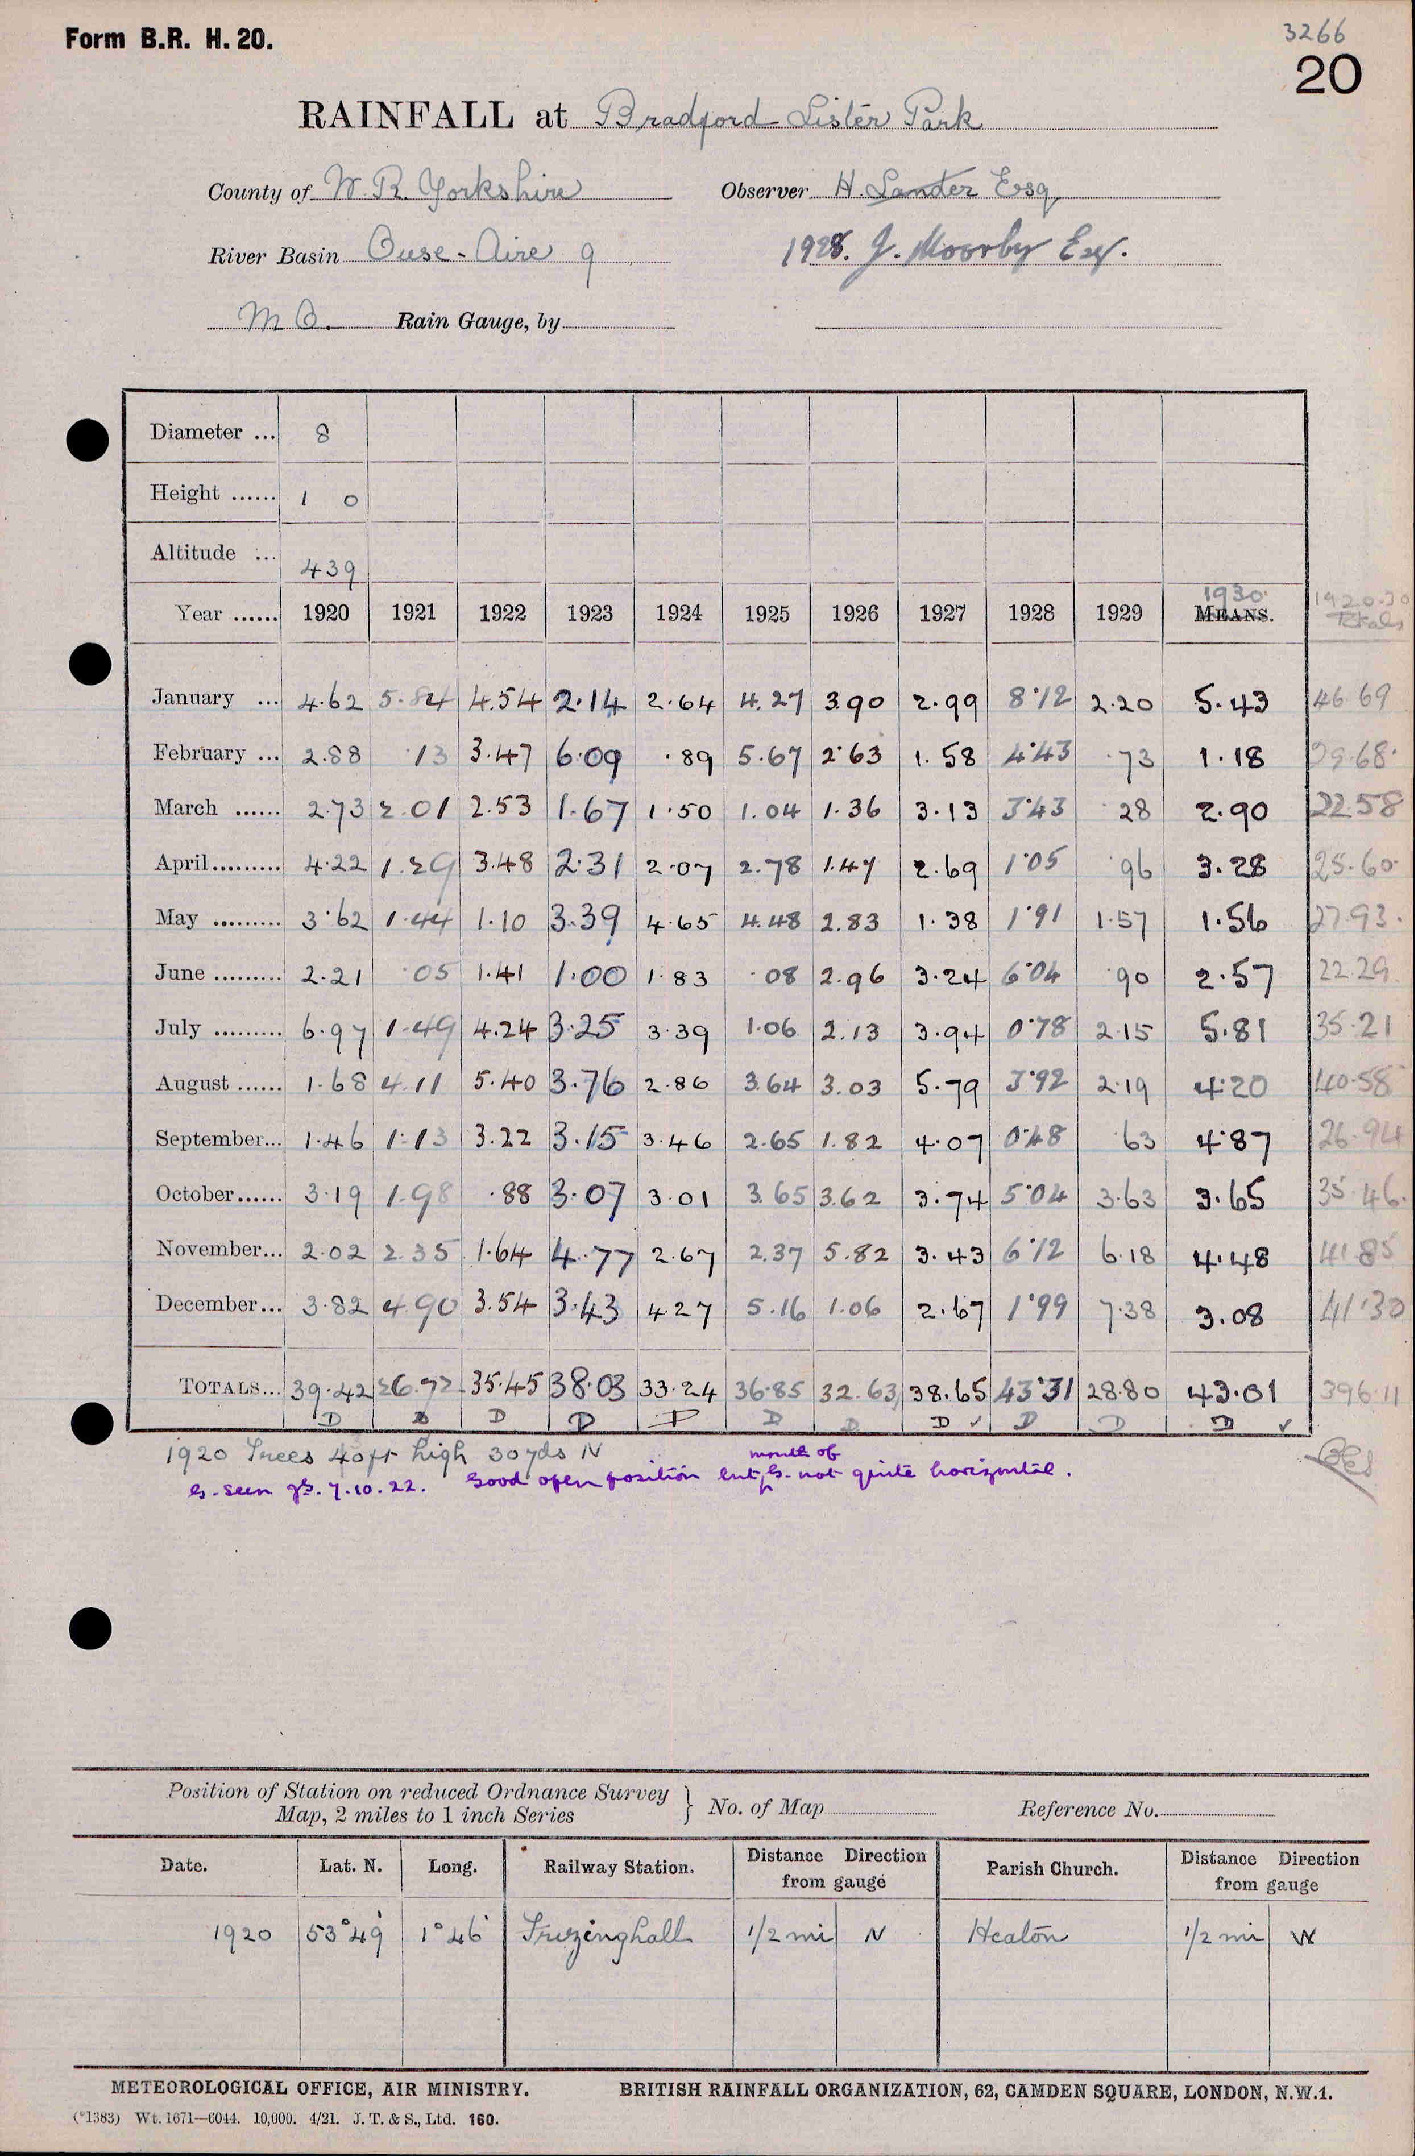 Form B.R. H. 20.
3266
20
RAINFALL at Bradford Lister Park
County of W. R. Yorkshire Observer H. Lander Esq
River Basin Ouse-Aire 9 1928. J. Moorby Esq.
M O. Rain Gauge, by
Diameter ... 8
Height ...... 1 0
Altitude ... 439
Year ...... 1920 1921 1922 1923 1924 1925 1926 1927 1928 1929 1930 MEANS. 1920-30 Totals
January ... 4.62 5.84 4.54 2.14 2.64 4.27 3.90 2.99 8.12 2.20 5.43 46.69
February ... 2.88 .13 3.47 6.09 .89 5.67 2.63 1.58 4.43 .73 1.18 29.68
March ...... 2.73 2.01 2.53 1.67 1.50 1.04 1.36 3.13 3.43 .28 2.90 22.58
April......... 4.22 1.29 3.48 2.31 2.07 2.78 1.47 2.69 1.05 .96 3.28 25.60
May ......... 3.62 1.44 1.10 3.39 4.65 4.48 2.83 1.38 1.91 1.57 1.56 27.93
June ......... 2.21 .05 1.41 1.00 1.83 .08 2.96 3.24 6.04 .90 2.57 22.29
July ......... 6.97 1.49 4.24 3.25 3.39 1.06 2.13 3.94 0.78 2.15 5.81 35.21
August ...... 1.68 4.11 5.40 3.76 2.86 3.64 3.03 5.79 3.92 2.19 4.20 40.58
September... 1.46 1.13 3.22 3.15 3.46 2.65 1.82 4.07 0.48 .63 4.87 26.94
October...... 3.19 1.98 .88 3.07 3.01 3.65 3.62 3.74 5.04 3.63 3.65 35.46
November... 2.02 2.35 1.64 4.77 2.67 2.37 5.82 3.43 6.12 6.18 4.48 41.85
December... 3.82 4.90 3.54 3.43 4.27 5.16 1.06 2.67 1.99 7.38 3.08 41.30
TOTALS... 39.42 26.72 35.45 38.03 33.24 36.85 32.63 38.65 43.31 28.80 43.01 396.11
D D D D D D D D ✓ D D D ✓
1920 Trees 40ft high 30yds N
month of
G. seen 7.10.22. Good open position but G. not quite horizontal.
Position of Station on reduced Ordnance Survey
Map, 2 miles to 1 inch Series } No. of Map Reference No.
Date. Lat. N. Long. Railway Station. Distance Direction from gauge Parish Church. Distance Direction from gauge
1920 53°49' 1°46' Frizinghall 1/2 mi N Heaton 1/2 mi W
METEOROLOGICAL OFFICE, AIR MINISTRY. BRITISH RAINFALL ORGANIZATION, 62, CAMDEN SQUARE, LONDON, N.W.1.
(*1383) Wt. 1671—6044. 10,000. 4/21. J. T. & S., Ltd. 160.